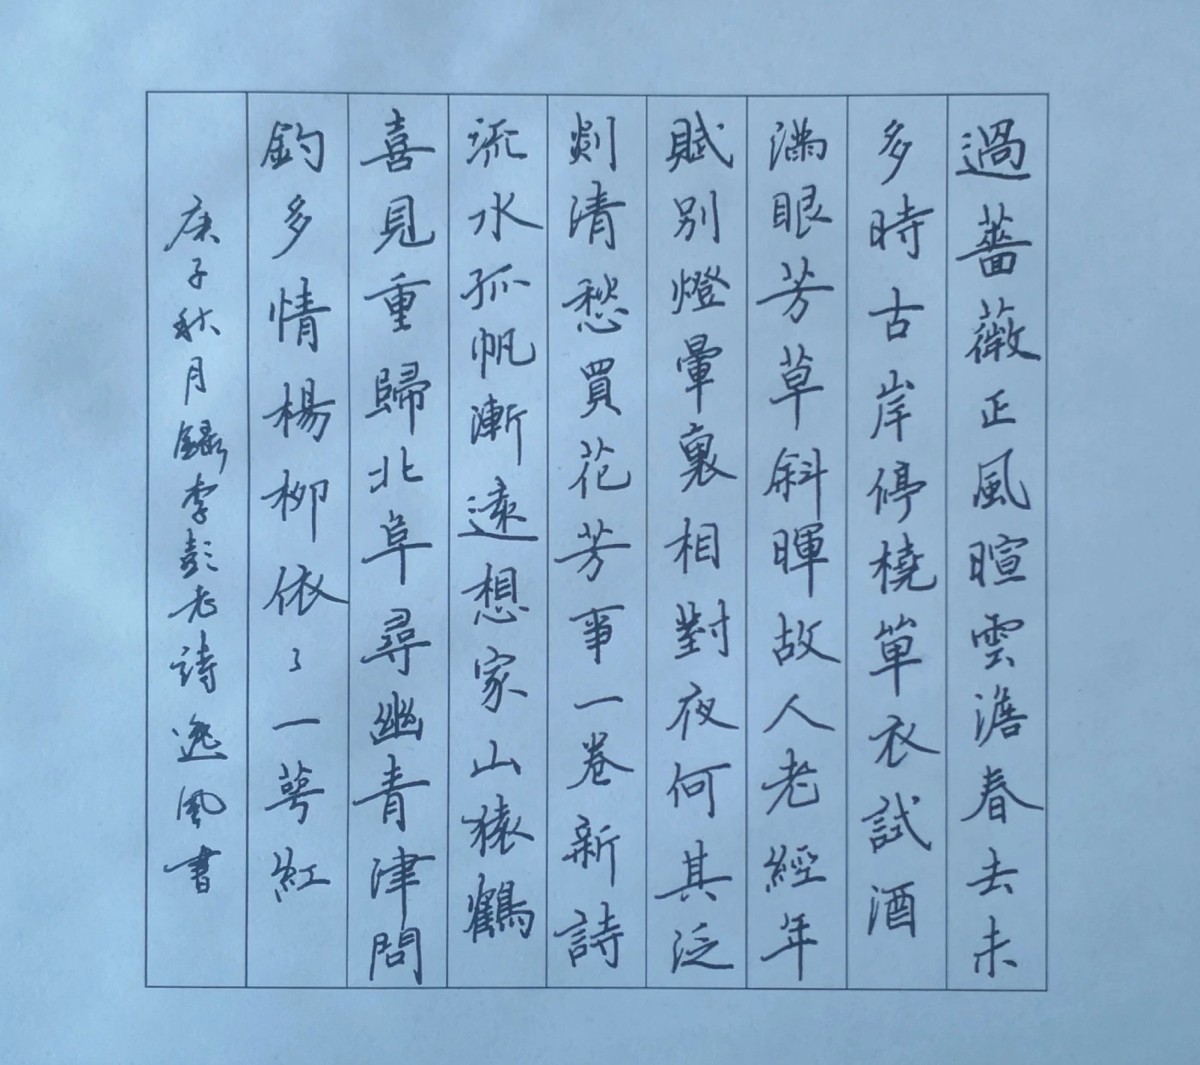 過薔薇正風暄雲澹春去未
多時古岸停橈單衣試酒
滿眼芳草斜暉故人老經年
賦別燈暈裏相對夜何其泛
剡清愁買花芳事一卷新詩
流水孤帆漸遠想家山猿鶴
喜見重歸北阜尋幽青津問
釣多情楊柳依〻一萼紅
庚子秋月錄李彭老詩逸風書